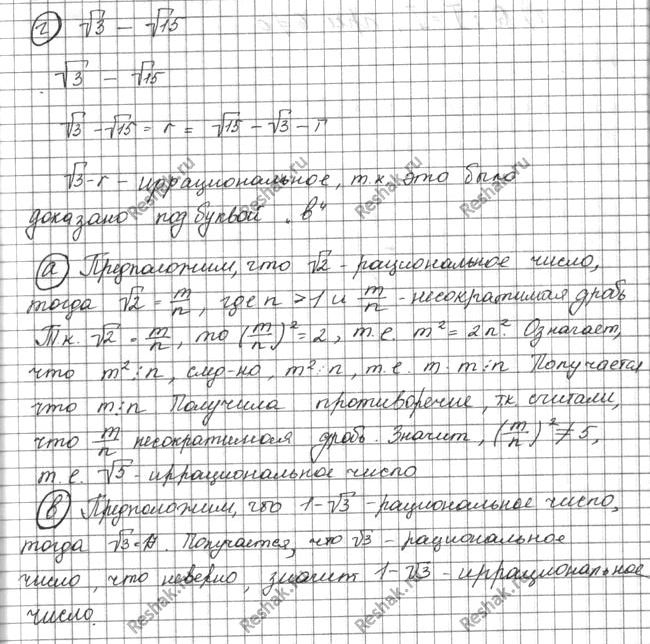 г) √3 – √15
√3 – √15
√3 – √15 = r = √15 – √3 – r
√3 – r – иррациональное, т.к. это было
доказано под буквой „в“
а) Предположим, что √2 – рациональное число,
тогда √2 = m/n, где n > 1 и m/n – несократимая дробь
Т.к. √2 = m/n, то (m/n)² = 2, т.е. m² = 2n². Означает,
что m² ⋮ n, след-но, m² ⋮ n, т.е. m · m ⋮ n Получается
что m ⋮ n Получила противоречие, тк считали,
что m/n несократимая дробь. Значит, (m/n)² ≠ 5,
т.е. √5 – иррациональное число
в) Предположим, что 1–√3 – рациональное число,
тогда √3 = . Получается, что √3 – рациональное
число, что неверно, значит 1–√3 – иррациональное
число.
Reshak.ru
Reshak.ru
Reshak.ru
Reshak.ru
Reshak.ru
Reshak.ru
Reshak.ru
Reshak.ru
Reshak.ru